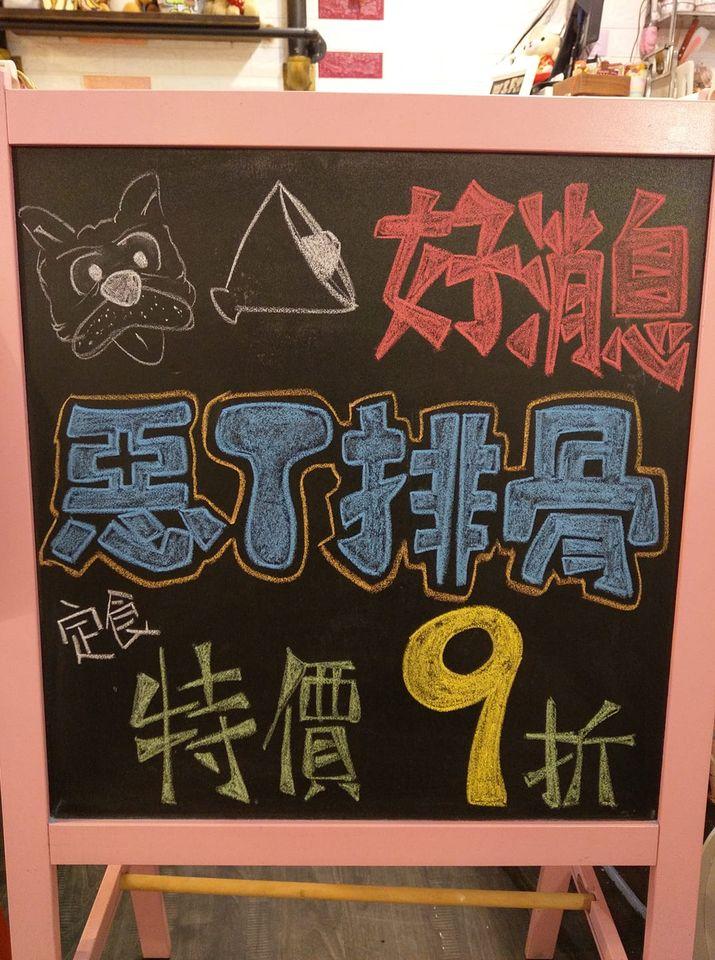 好消息
惡丁排骨
定食
特價9折